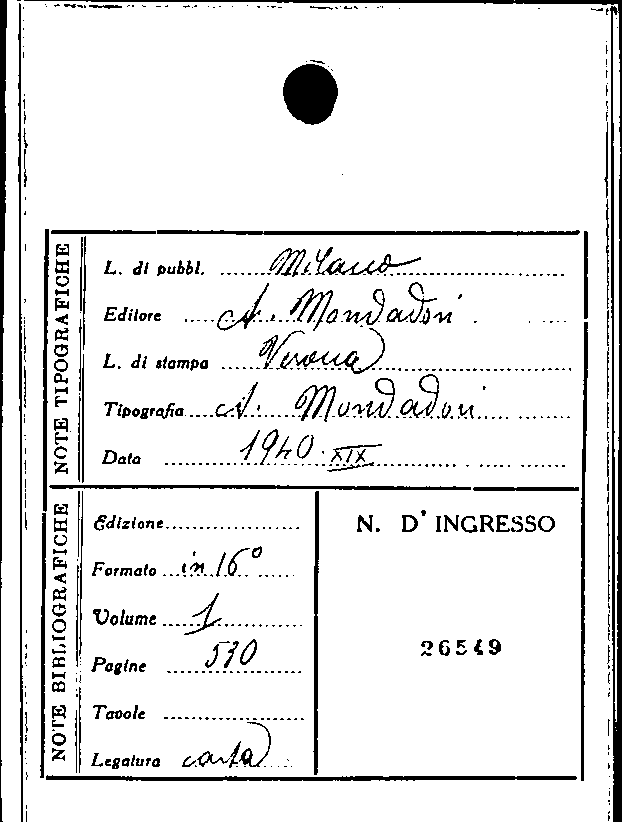 NOTE TIPOGRAFICHE
L. di pubbl. Milano
Editore A. Mondadori
L. di stampa Verona
Tipografia A. Mondadori
Data 1940 · XIX
NOTE BIBLIOGRAFICHE
Edizione
Formato in 16°
Volume 1
Pagine 530
Tavole
Legatura carta
N. D' INGRESSO
26549